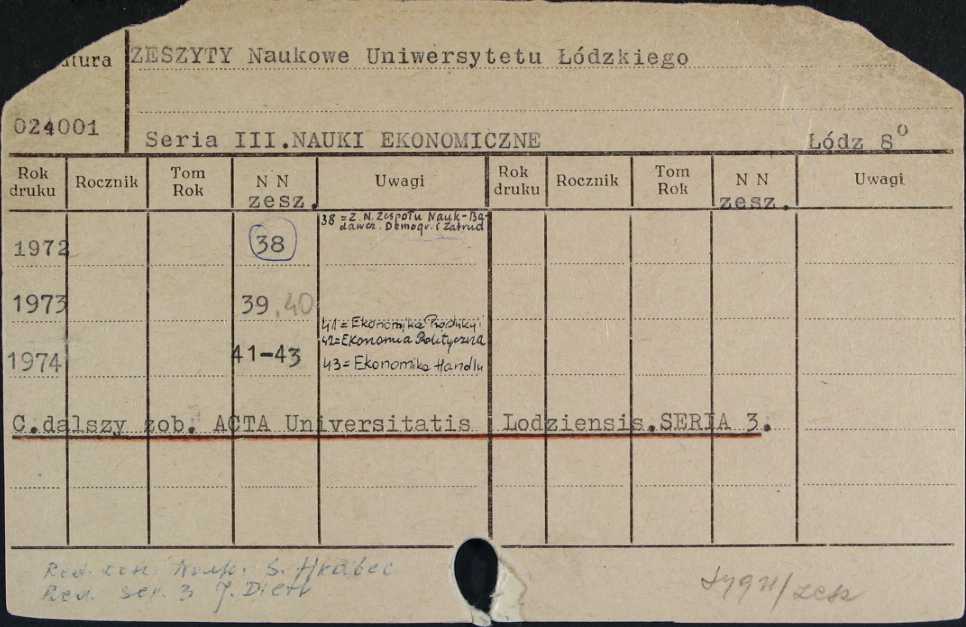 ZESZYTY Naukowe Uniwersytetu Łódzkiego
024001
Seria III.NAUKI EKONOMICZNE Łódz 8°
Rok druku Rocznik Tom Rok N N zesz. Uwagi Rok druku Rocznik Tom Rok N N zesz. Uwagi
38 = Z. N. Zespołu Nauk-Ba-
dawcz. Demogr. i Zatrud
1972 38
1973 39,40
41 = Ekonomika Produkcji
42=Ekonomia Polityczna
1974 41-43 43= Ekonomika Handlu
C.dalszy zob. ACTA Universitatis Lodziensis.SERIA 3.
S. Hrabec
Red. ser. 3 J.